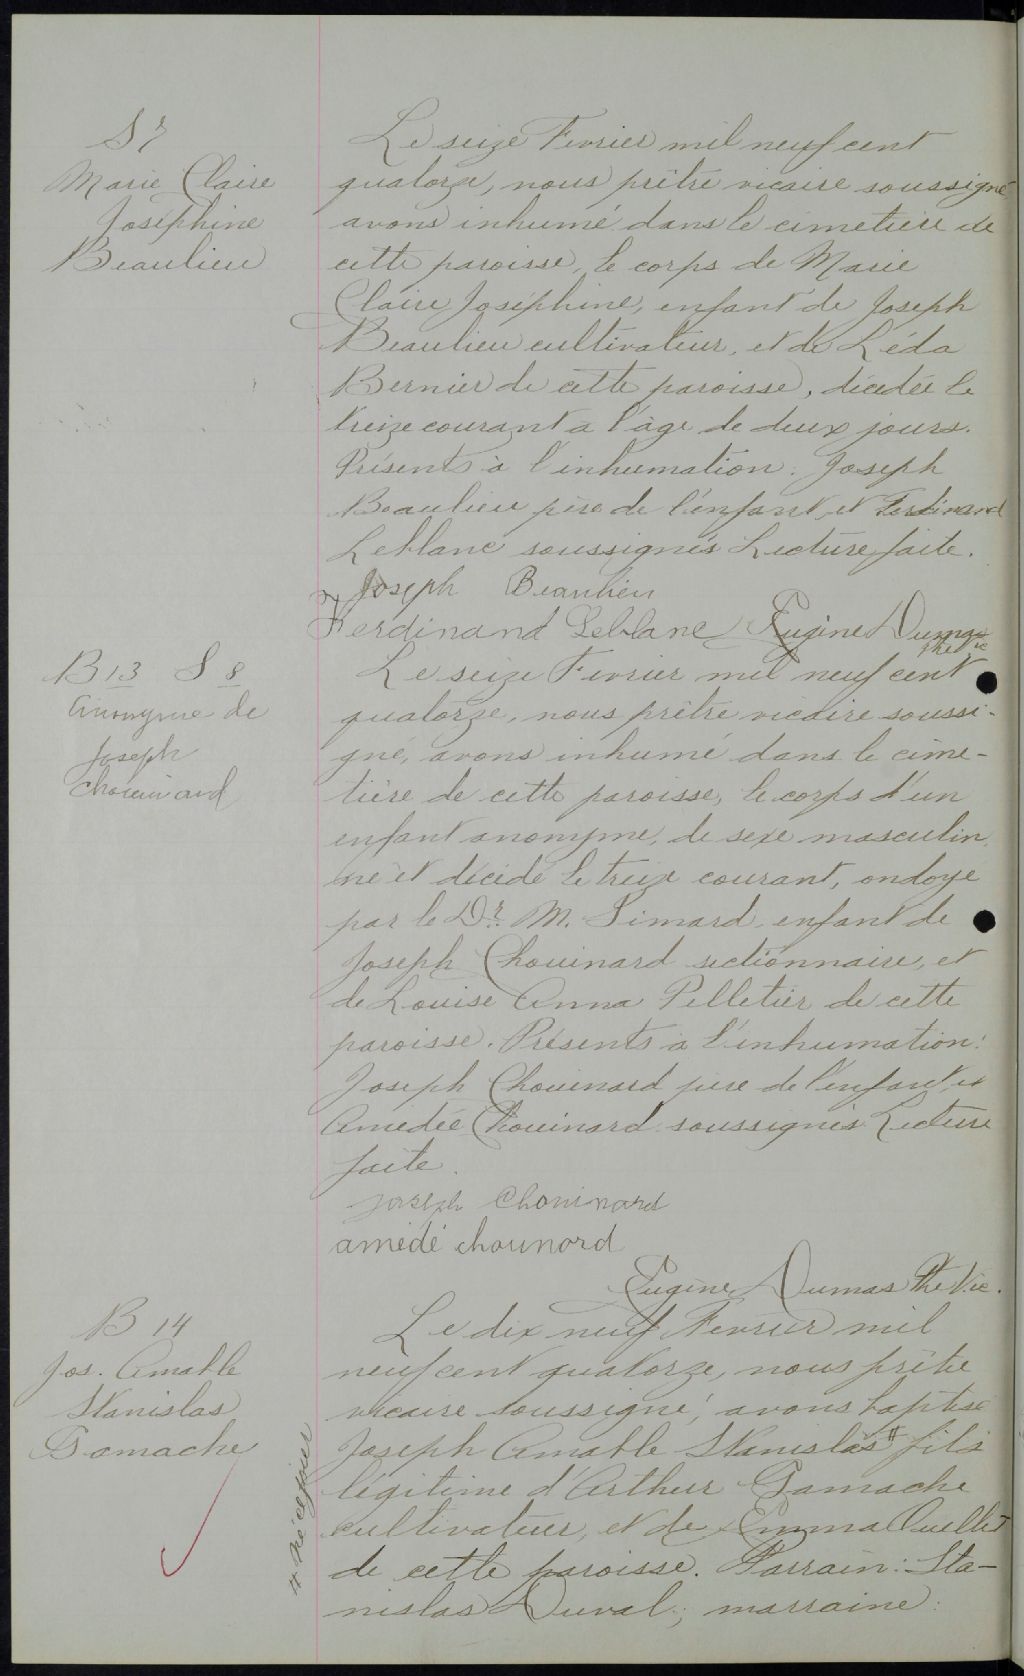 S 7
Marie Claire
Joséphine
Beaulieu
Le seize Fevrier mil neuf cent
quatorze, nous prêtre vicaire soussigné
avons inhumé dans le cimetière de
cette paroisse, le corps de Marie
Claire Joséphine, enfant de Joseph
Beaulieu cultivateur, et de Léda
Bernier de cette paroisse, décédée le
treize courant à l'âge de deux jours.
Présents à l'inhumation: Joseph
Beaulieu père de l'enfant, et Ferdinand
Leblanc soussignés Lecture faite.
Joseph Beaulieu
Ferdinand Leblanc Eugène Dumas
Ptre Vic
B 13 S 8
Anonyme de
Joseph
Chouinard
Le seize Fevrier mil neuf cent
quatorze, nous prêtre vicaire soussi-
gné, avons inhumé dans le cime-
tière de cette paroisse, le corps d'un
enfant anonyme, de sexe masculin,
né et décédé le treize courant, ondoyé
par le Dr. M. Simard, enfant de
Joseph Chouinard sectionnaire, et
de Louise Anna Pelletier de cette
paroisse. Présents à l'inhumation:
Joseph Chouinard père de l'enfant, et
Amédée Chouinard soussignés Lecture
faite.
Joseph Chouinard
amédé chouinord
Eugène Dumas Ptre Vic.
B 14
Jos. Amable
Stanislas
Gamache
Le dix neuf Fevrier mil
neuf cent quatorze, nous prêtre
vicaire soussigné, avons baptisé
Joseph Amable Stanislas # fils
légitime d'Arthur Gamache
cultivateur, et de Emma Ouellet
de cette paroisse. Parrain: Sta-
nislas Duval; marraine:
# né ce jour